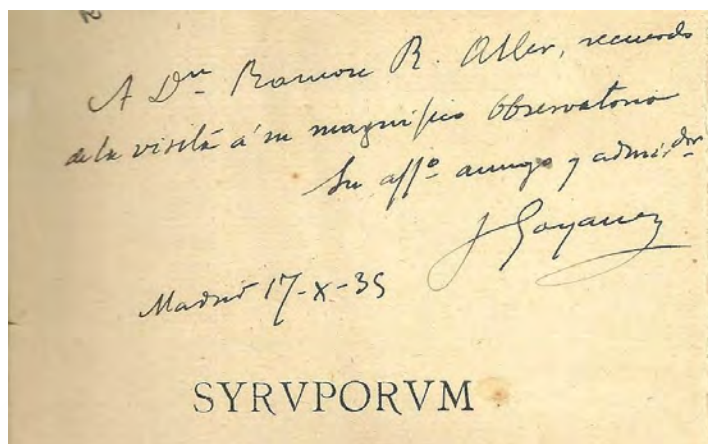 A Dn Ramon R. Aller, recuerdo
de la visita á su magnifico Observatorio
Su affo amigo y admirdor
J Goyanes
Madrid 17-X-35
SYRVPORVM